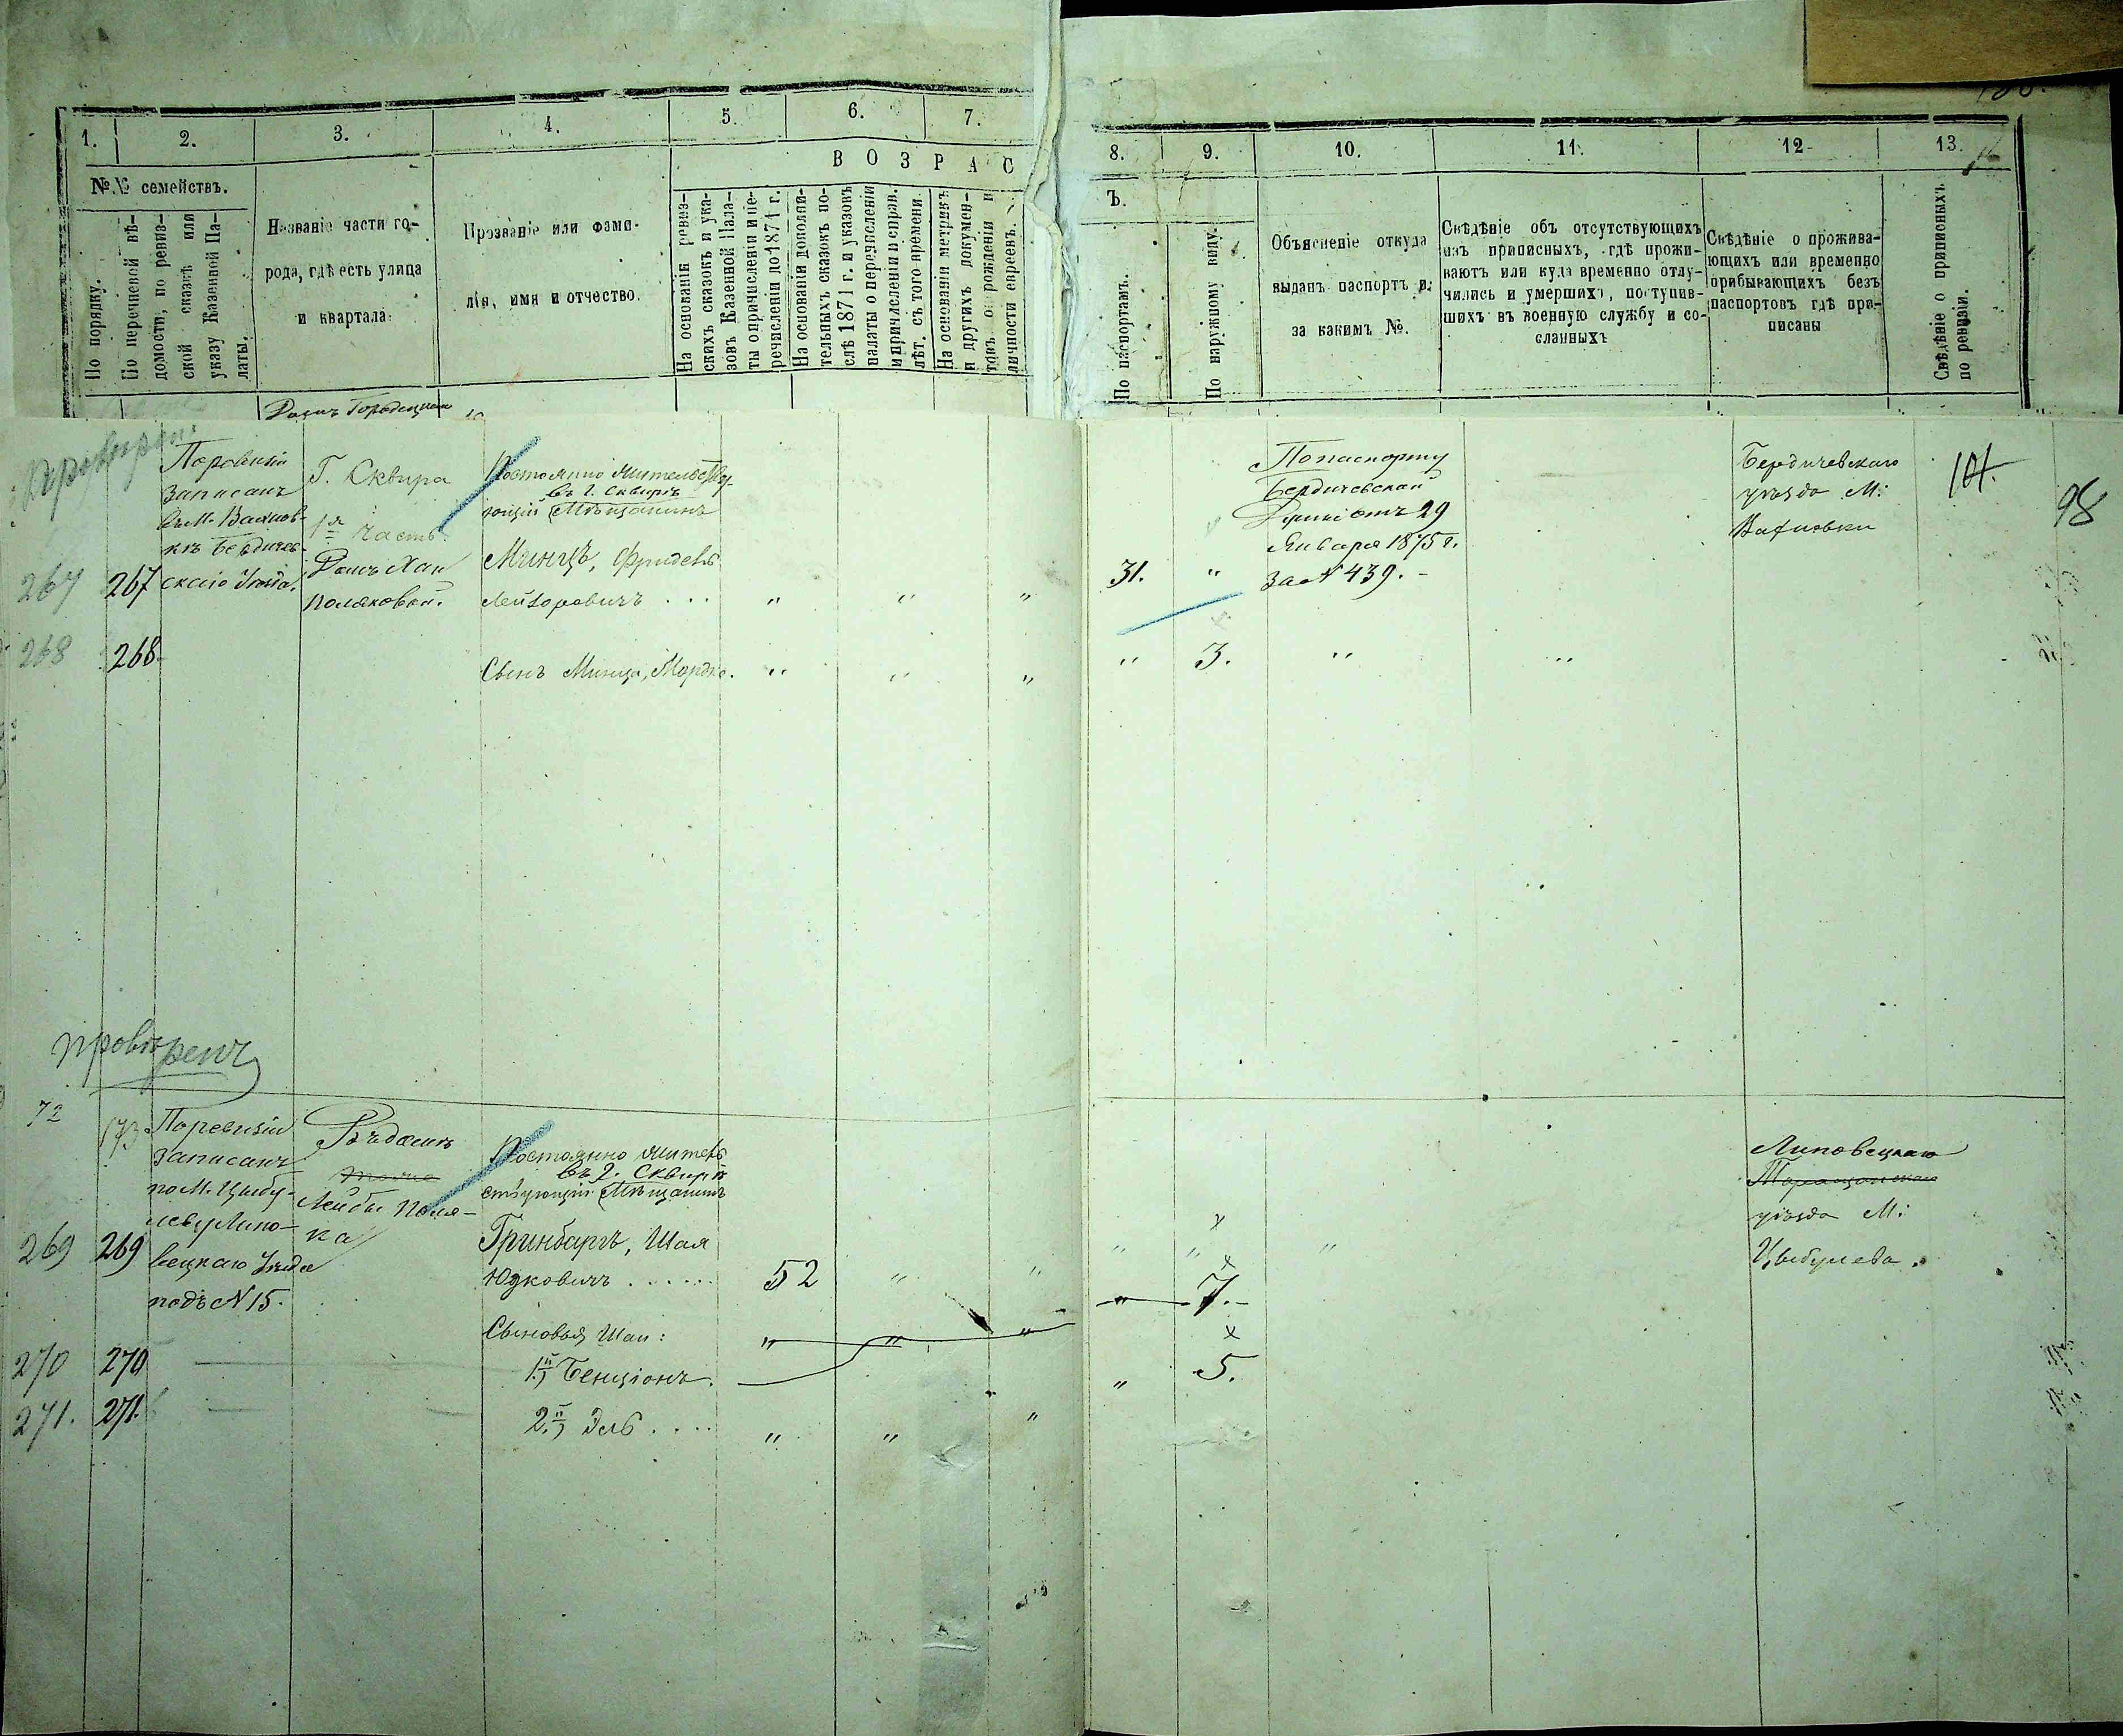 1. 2. 3. 4. 5. 6. 7.
8. 9. 10. 11. 12. 13.
В О З Р А С
Ъ.
№.№ семействъ.
По порядку.
По перечневой вѣ-
домости, по ревиз-
ской сказкѣ или
указу Казенной Па-
латы.
Названіе части го-
рода, гдѣ есть улица
и квартала.
Прозваніе или фами-
лія, имя и отчество.
На основаніи ревиз-
скихъ сказокъ и ука-
зовъ Казенной Пала-
ты о причисленіи и пе-
речисленіи до 1871 г.
На основаніи дополни-
тельныхъ сказокъ по-
слѣ 1871 г. и указовъ
палаты о перечисленіи
и причисленіи и справ.
лѣт. съ того времени.
На основаніи метрикъ
и другихъ докумен-
товъ о рожденіи и
личности евреевъ.
По паспортамъ.
По наружному виду.
Объясненіе откуда
выданъ паспортъ и
за какимъ №.
Свѣдѣніе объ отсутствующихъ
изъ приписныхъ, гдѣ прожи-
ваютъ или куда временно отлу-
чились и умершихъ, поступив-
шихъ въ военную службу и со-
сланныхъ
Свѣдѣніе о прожива-
ющихъ или временно
прибывающихъ безъ
паспортовъ гдѣ при-
писаны
Свѣдѣніе о приписныхъ
по ревизіи.
Домъ Городецкаго
267 267
Поревизіи
записанъ
въ М. Вахнов-
кѣ Бердичев-
скаго Уезда.
Г. Сквира
1я часть.
Домъ Хаи
Поляковой.
Постоянно жительству-
въ г. Сквирѣ
ющій Мѣщанинъ
Минцъ, Фридель
Лейзоровичъ . . . " " "
31. "
Попаспорту
Бердичевской
Думы отъ 29
Января 1875 г.
за № 439. -
Бердичевскаго
уѣзда М:
Вахновки
98
268 268
Сынъ Минца, Мордко. " " "
" 3. " "
провѣренъ
72
173
269 269
Поревизіи
записанъ
по М. Цыбу-
леву Липо-
вецкаго Уезда
подъ № 15.
Въ домѣ
Лейбы Поля-
ка
Постоянно житель
въ г. Сквирѣ
ствующій Мѣщанинъ
Гринбаргъ, Шая
Юдковичъ . . . . . . 52 " "
" " "
Липовецкаго
Таращанскаго
уѣзда М:
Цыбулева.
Сыновья Шаи: " " "
270 270
1й) Бенціонъ.
" 7. -
271. 271.
2й) Эль . . . . " " "
" 5.